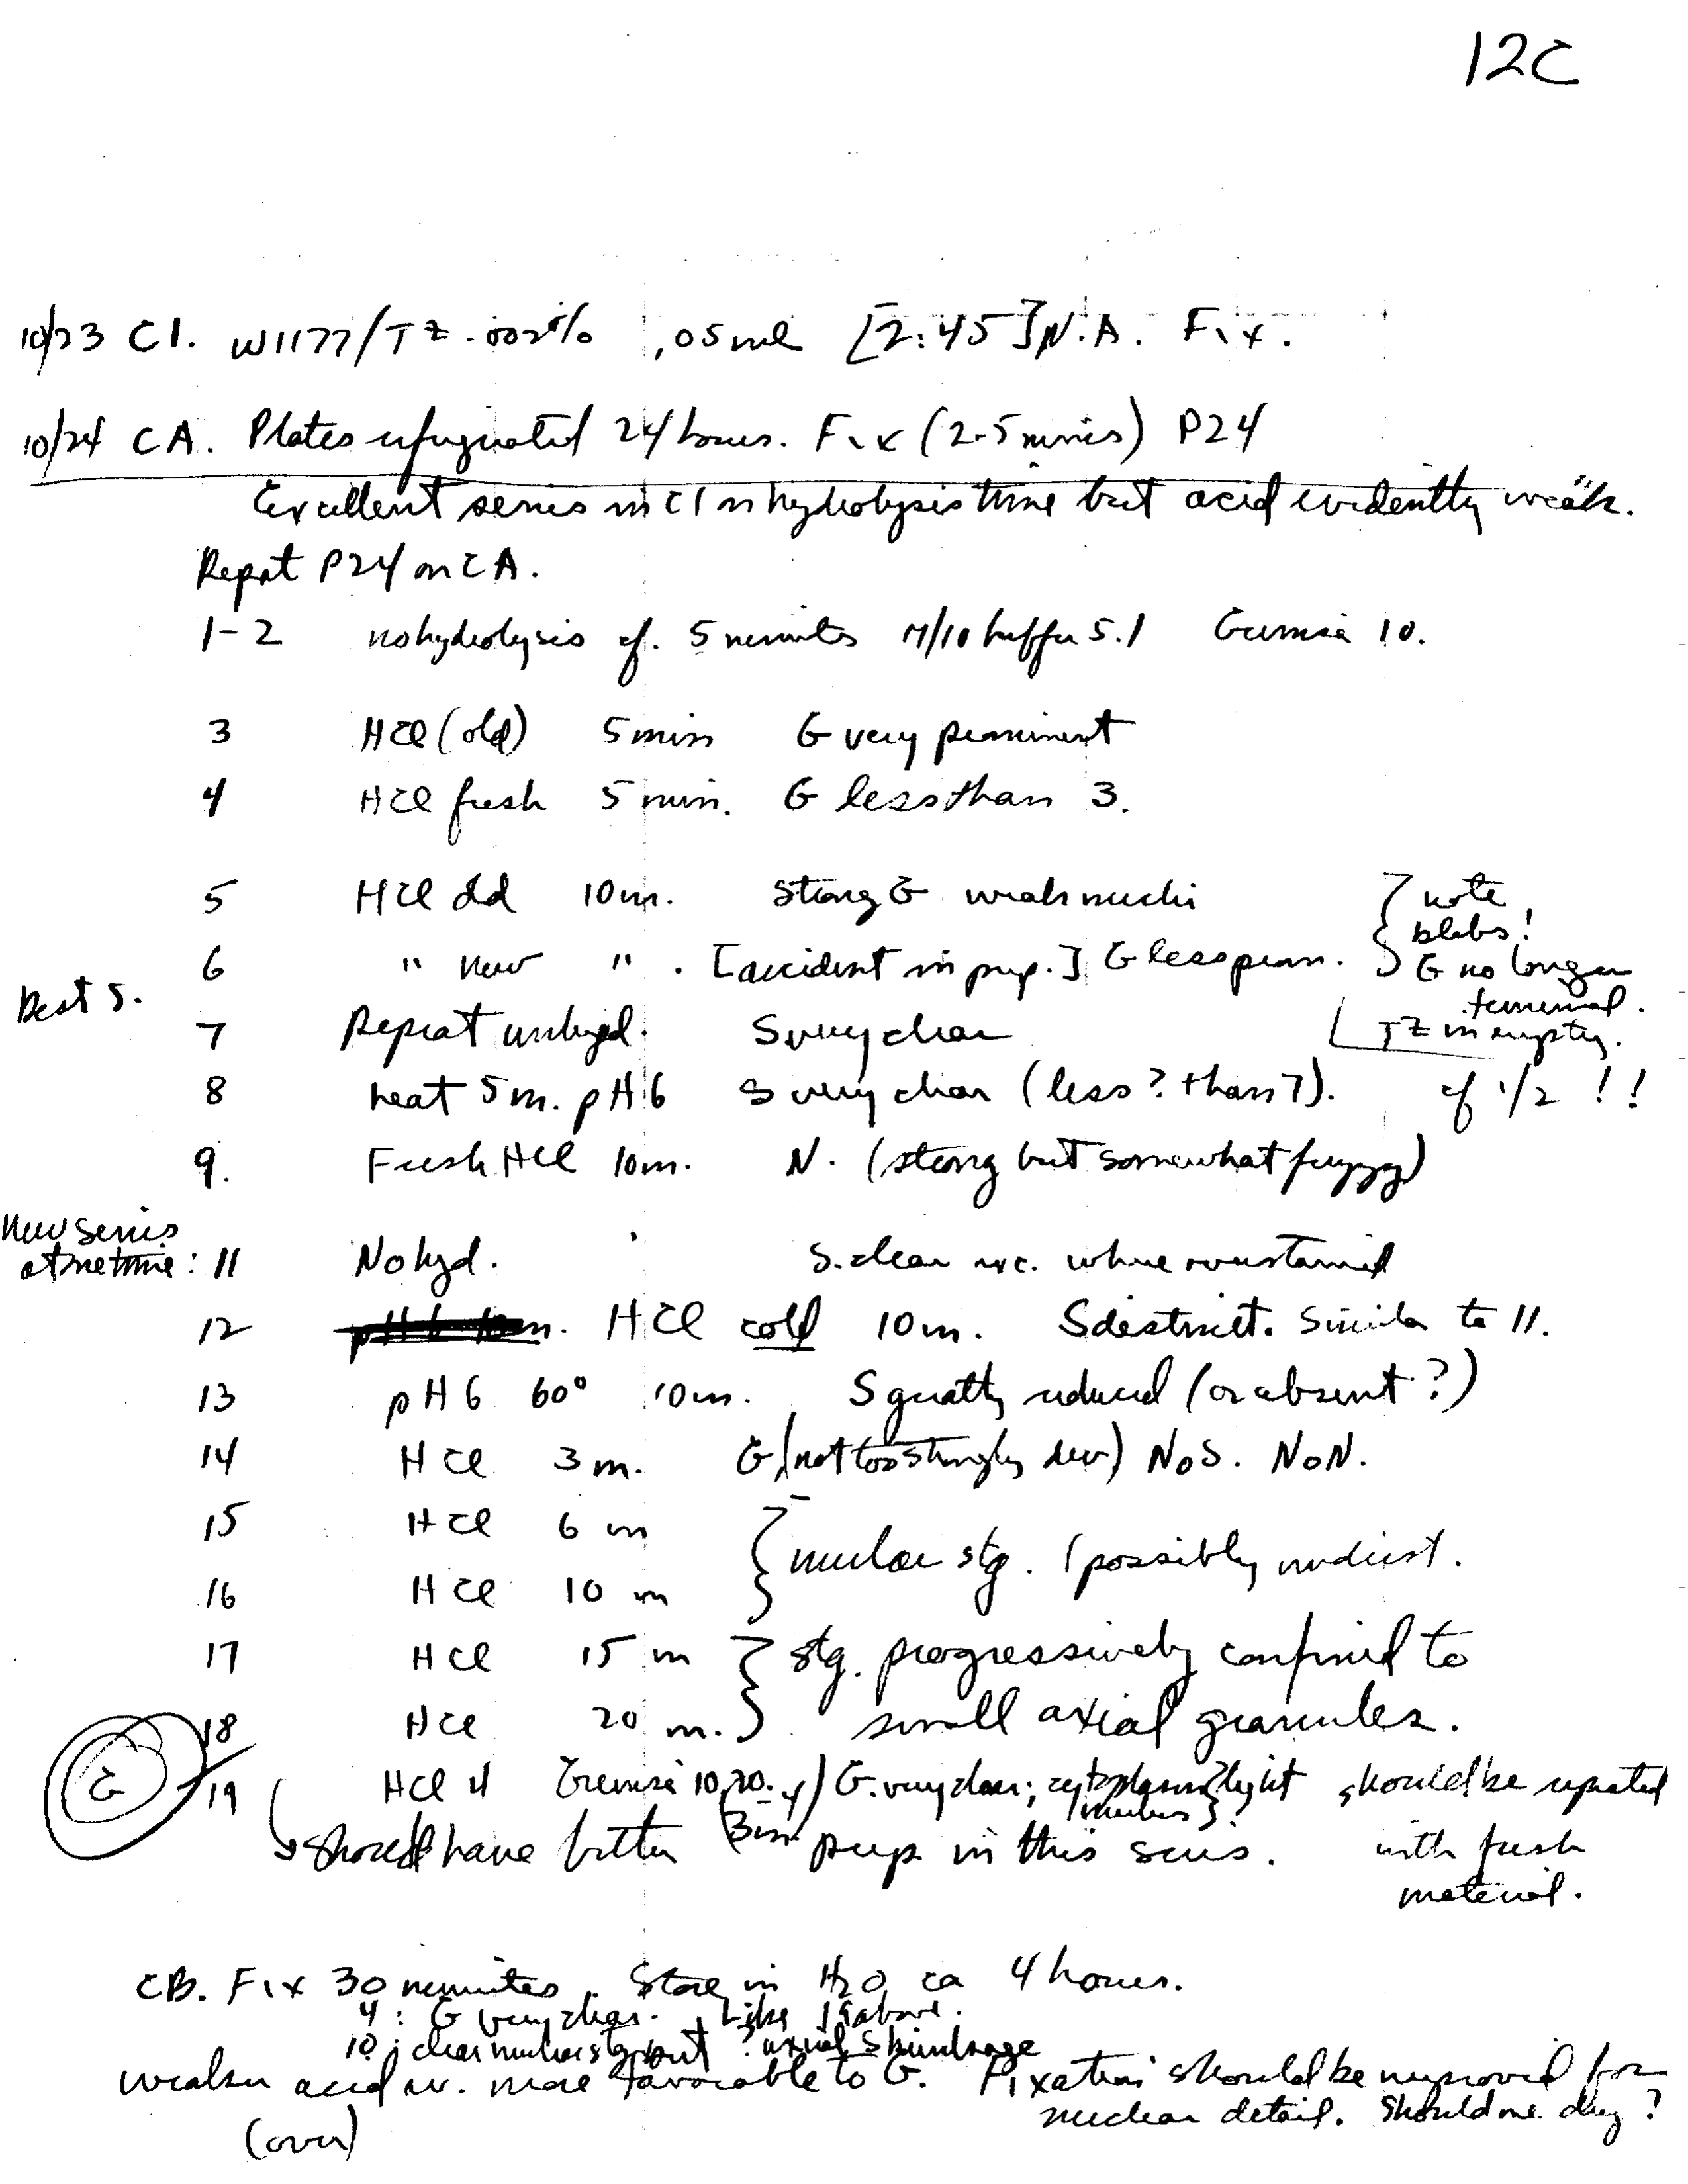 12C
10/23 C1. W1177/TZ .002% .05 ml [2:45] N.A. Fix.
10/24 CA. Plates refrigerated 24 hours. Fix (2-5 mins) P24
Excellent series in C1 on hydrolysis time but acid evidently weak.
Repeat P24 on CA.
1-2 no hydrolysis cf. 5 minutes M/10 buffer 5.1 Giemsa 10.
3 HCl (old) 5 min G very prominent
4 HCl fresh 5 min. G less than 3.
5 HCl old 10 m. Strong G weak nuclei } note blebs!
6 " new " . [accident in prep.] G less prom. G no longer terminal.
Best S.
7 Repeat unhyd. S very clear TZ in empty.
8 heat 5 m. pH 6 S very clear (less? than 7). cf 1/2 !!
9. Fresh HCl 10 m. N. (strong but somewhat fuzzy)
New series
at one time: 11 No hyd. S. clear where overstained
12 HCl cold 10 m. S distinct. Similar to 11.
13 pH 6 60° 10 m. S greatly reduced (or absent?)
14 HCl 3 m. G (not too strongly dev) No S. No N.
15 HCl 6 m } nuclear stg. (possibly indist.
16 HCl 10 m
17 HCl 15 m } stg. progressively confined to
18 HCl 20 m. small axial granules.
G 19 HCl 4 Giemsa 10, 20. G. very clear; cytoplasm light should be repeated
nucleus
(3 m
should have better prep in this series. with fresh
material.
CB. Fix 30 minutes. Store in H2O ca 4 hours.
4: G very clear. Like 19 above.
10: clear nuclear stg but ? axial shrinkage
weaker acid more favorable to G. Fixation should be improved for
nuclear detail. Should one dry?
(over)